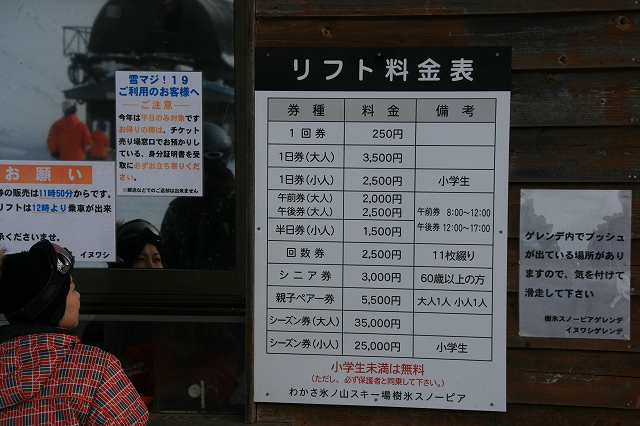 雪マジ！19
ご利用のお客様へ
ご注意
今年は平日のみ対象です
お帰りの際は、チケット
売り場窓口でお預かりし
ている、身分証明書を受
取に必ずお立ち寄りくだ
さい。
※郵送などでのご返却は出来ません
お願い
券の販売は11時50分からです。
リフトは12時より乗車が出来
承くださいませ。
イヌワシ
リフト料金表
券種 料金 備考
1回券 250円
1日券(大人) 3,500円
1日券(小人) 2,500円 小学生
午前券(大人) 2,000円 午前券 8:00〜12:00
午後券(大人) 2,500円 午後券 12:00〜17:00
半日券(小人) 1,500円
回数券 2,500円 11枚綴り
シニア券 3,000円 60歳以上の方
親子ペアー券 5,500円 大人1人 小人1人
シーズン券(大人) 35,000円
シーズン券(小人) 25,000円 小学生
小学生未満は無料
(ただし、必ず保護者と同乗して下さい。)
わかさ氷ノ山スキー場樹氷スノーピア
ゲレンデ内でブッシュ
が出ている場所があり
ますので、気を付けて
滑走して下さい
樹氷スノーピアゲレンデ
イヌワシゲレンデ